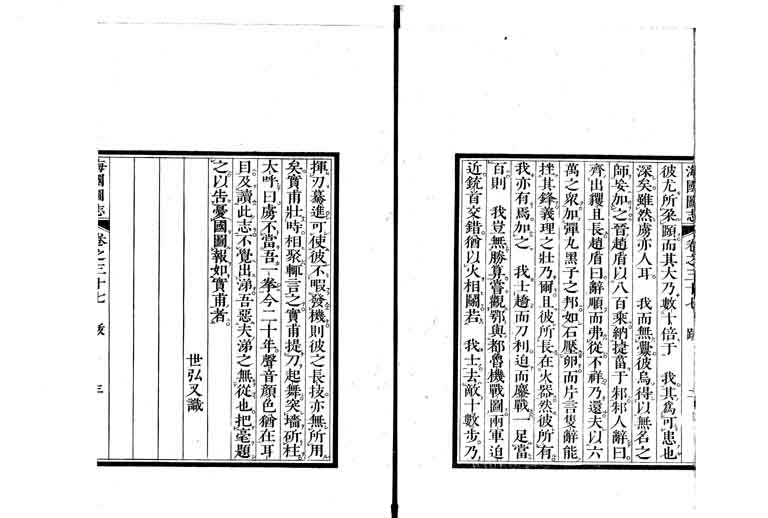 海國圖志 卷之三十七 跋 二
彼尤所朶頤而其大乃數十倍于 我其爲可患也
深矣雖然虜亦人耳 我而無釁彼烏得以無名之
師妄加之晉趙盾以八百乘納捷菑于邾邾人辭曰
齊出玃且長趙盾曰辭順而弗從不祥乃還夫以六
萬之衆加彈丸黑子之邦如石壓卵而片言隻辭能
挫其鋒義理之壯乃爾且彼所長在火器然彼所有
我亦有爲加之 我士趫而刀利迫而鏖戰一足當
百則 我豈無勝算嘗觀鄂與都魯機戰圖兩軍迫
近銃首交錯猶以火相鬬若 我士去敵十數步乃
揮刃驀進可使彼不暇發機則彼之長技亦無所用
矣實甫壯時相聚輒言之實甫提刀起舞突墻斫柱
大呼曰虜不當吾一拳今二十年聲音顔色猶在耳
目及讀此志不覺出涕吾惡夫涕之無從也把毫題
之以吿憂國圖報如實甫者
世弘又識
海國圖志 卷之三十七 跋 三